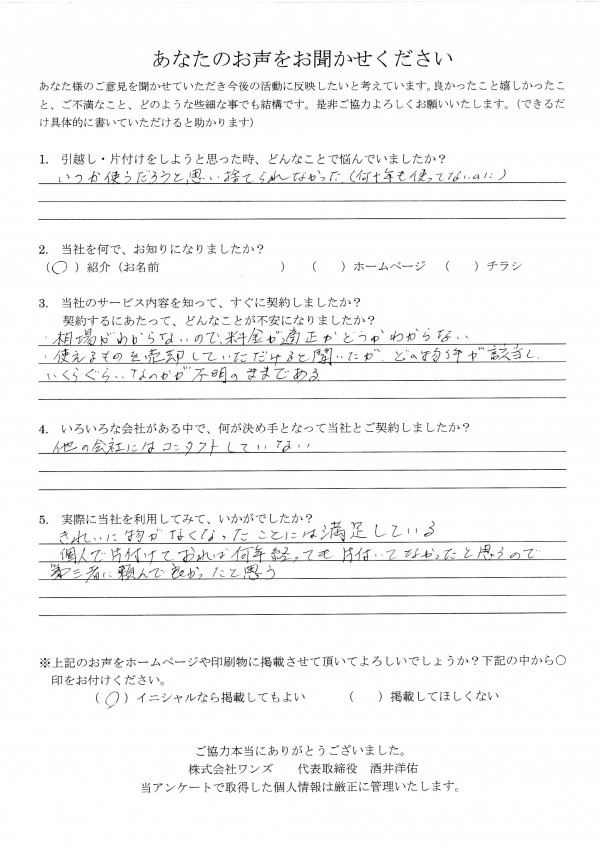 あなたのお声をお聞かせください
あなた様のご意見を聞かせていただき今後の活動に反映したいと考えています。良かったこと嬉しかったこ
と、ご不満なこと、どのような些細な事でも結構です。是非ご協力よろしくお願いいたします。（できるだ
け具体的に書いていただけると助かります）
1. 引越し・片付けをしようと思った時、どんなことで悩んでいましたか？
いつか使うだろうと思い捨てられなかった（何十年も使ってないのに）
2. 当社を何で、お知りになりましたか？
（○）紹介（お名前　　　　　　　　　）　（　）ホームページ　（　）チラシ
3. 当社のサービス内容を知って、すぐに契約しましたか？
契約するにあたって、どんなことが不安になりましたか？
・相場がわからないので、料金が適正かどうかわからない
・使えるものを売却していただけると聞いたが、どの物件が該当し、
いくらぐらいなのかが不明のままである
4. いろいろな会社がある中で、何が決め手となって当社とご契約しましたか？
他の会社にはコンタクトしていない
5. 実際に当社を利用してみて、いかがでしたか？
きれいに物がなくなったことには満足している
個人で片付けておれば何年経っても片付いてなかったと思うので
第三者に頼んで良かったと思う
※上記のお声をホームページや印刷物に掲載させて頂いてよろしいでしょうか？下記の中から○
印をお付けください。
（○）イニシャルなら掲載してもよい　　（　）掲載してほしくない
ご協力本当にありがとうございました。
株式会社ワンズ　　代表取締役　酒井洋佑
当アンケートで取得した個人情報は厳正に管理いたします。